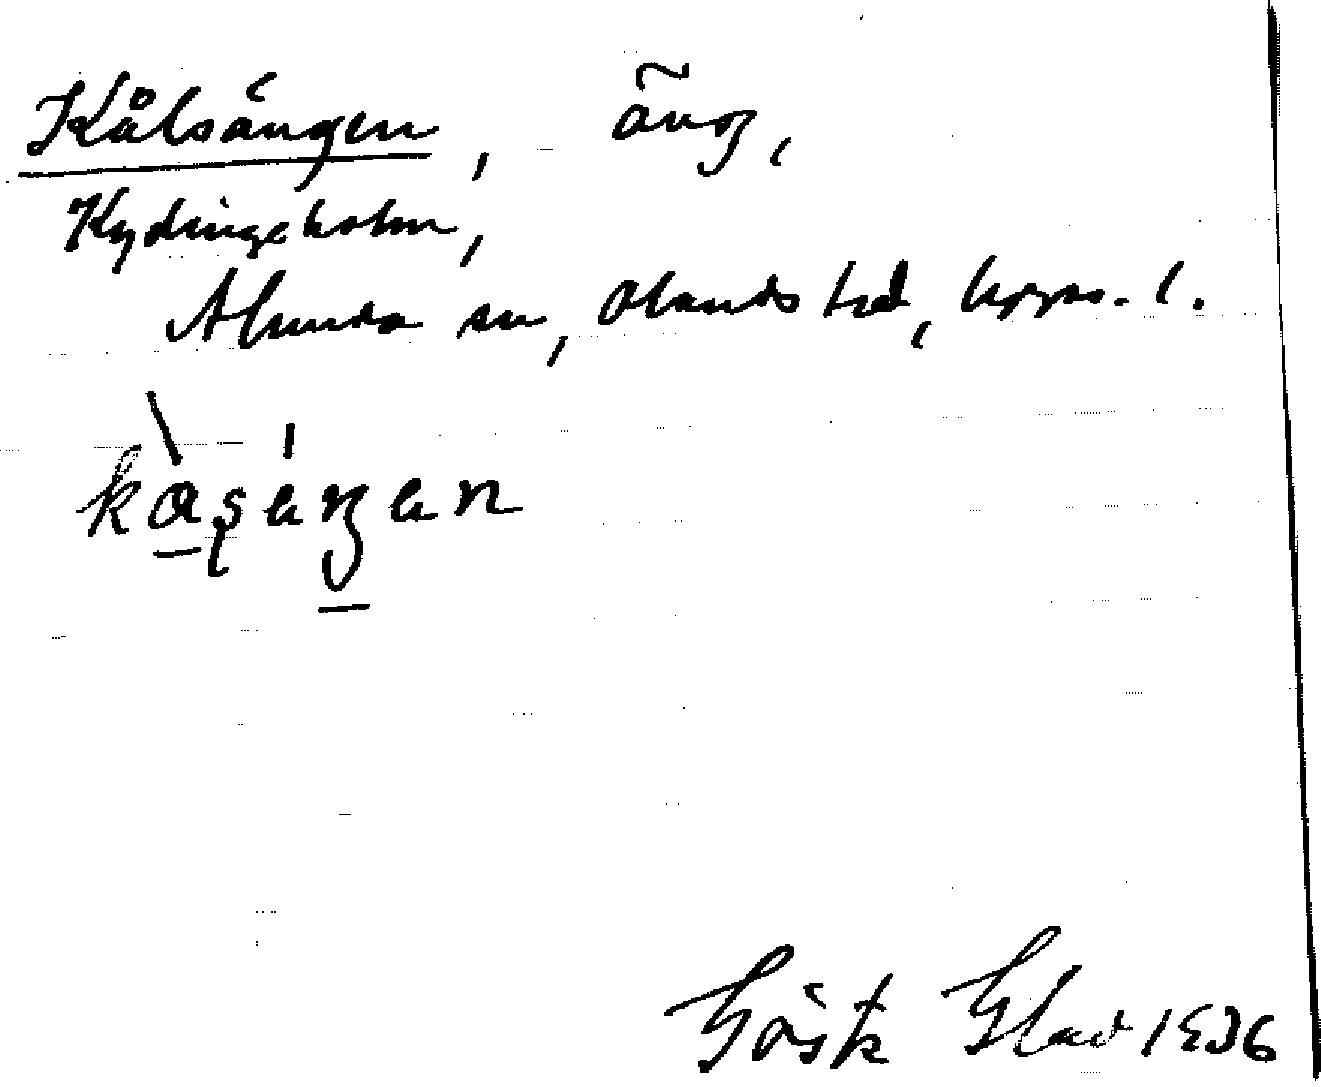 Kålsängen, äng,
Kydingeholm,
Alunda sn, Olands hd, Upps. l.
kåsäŋen
Gösta Glad 1936